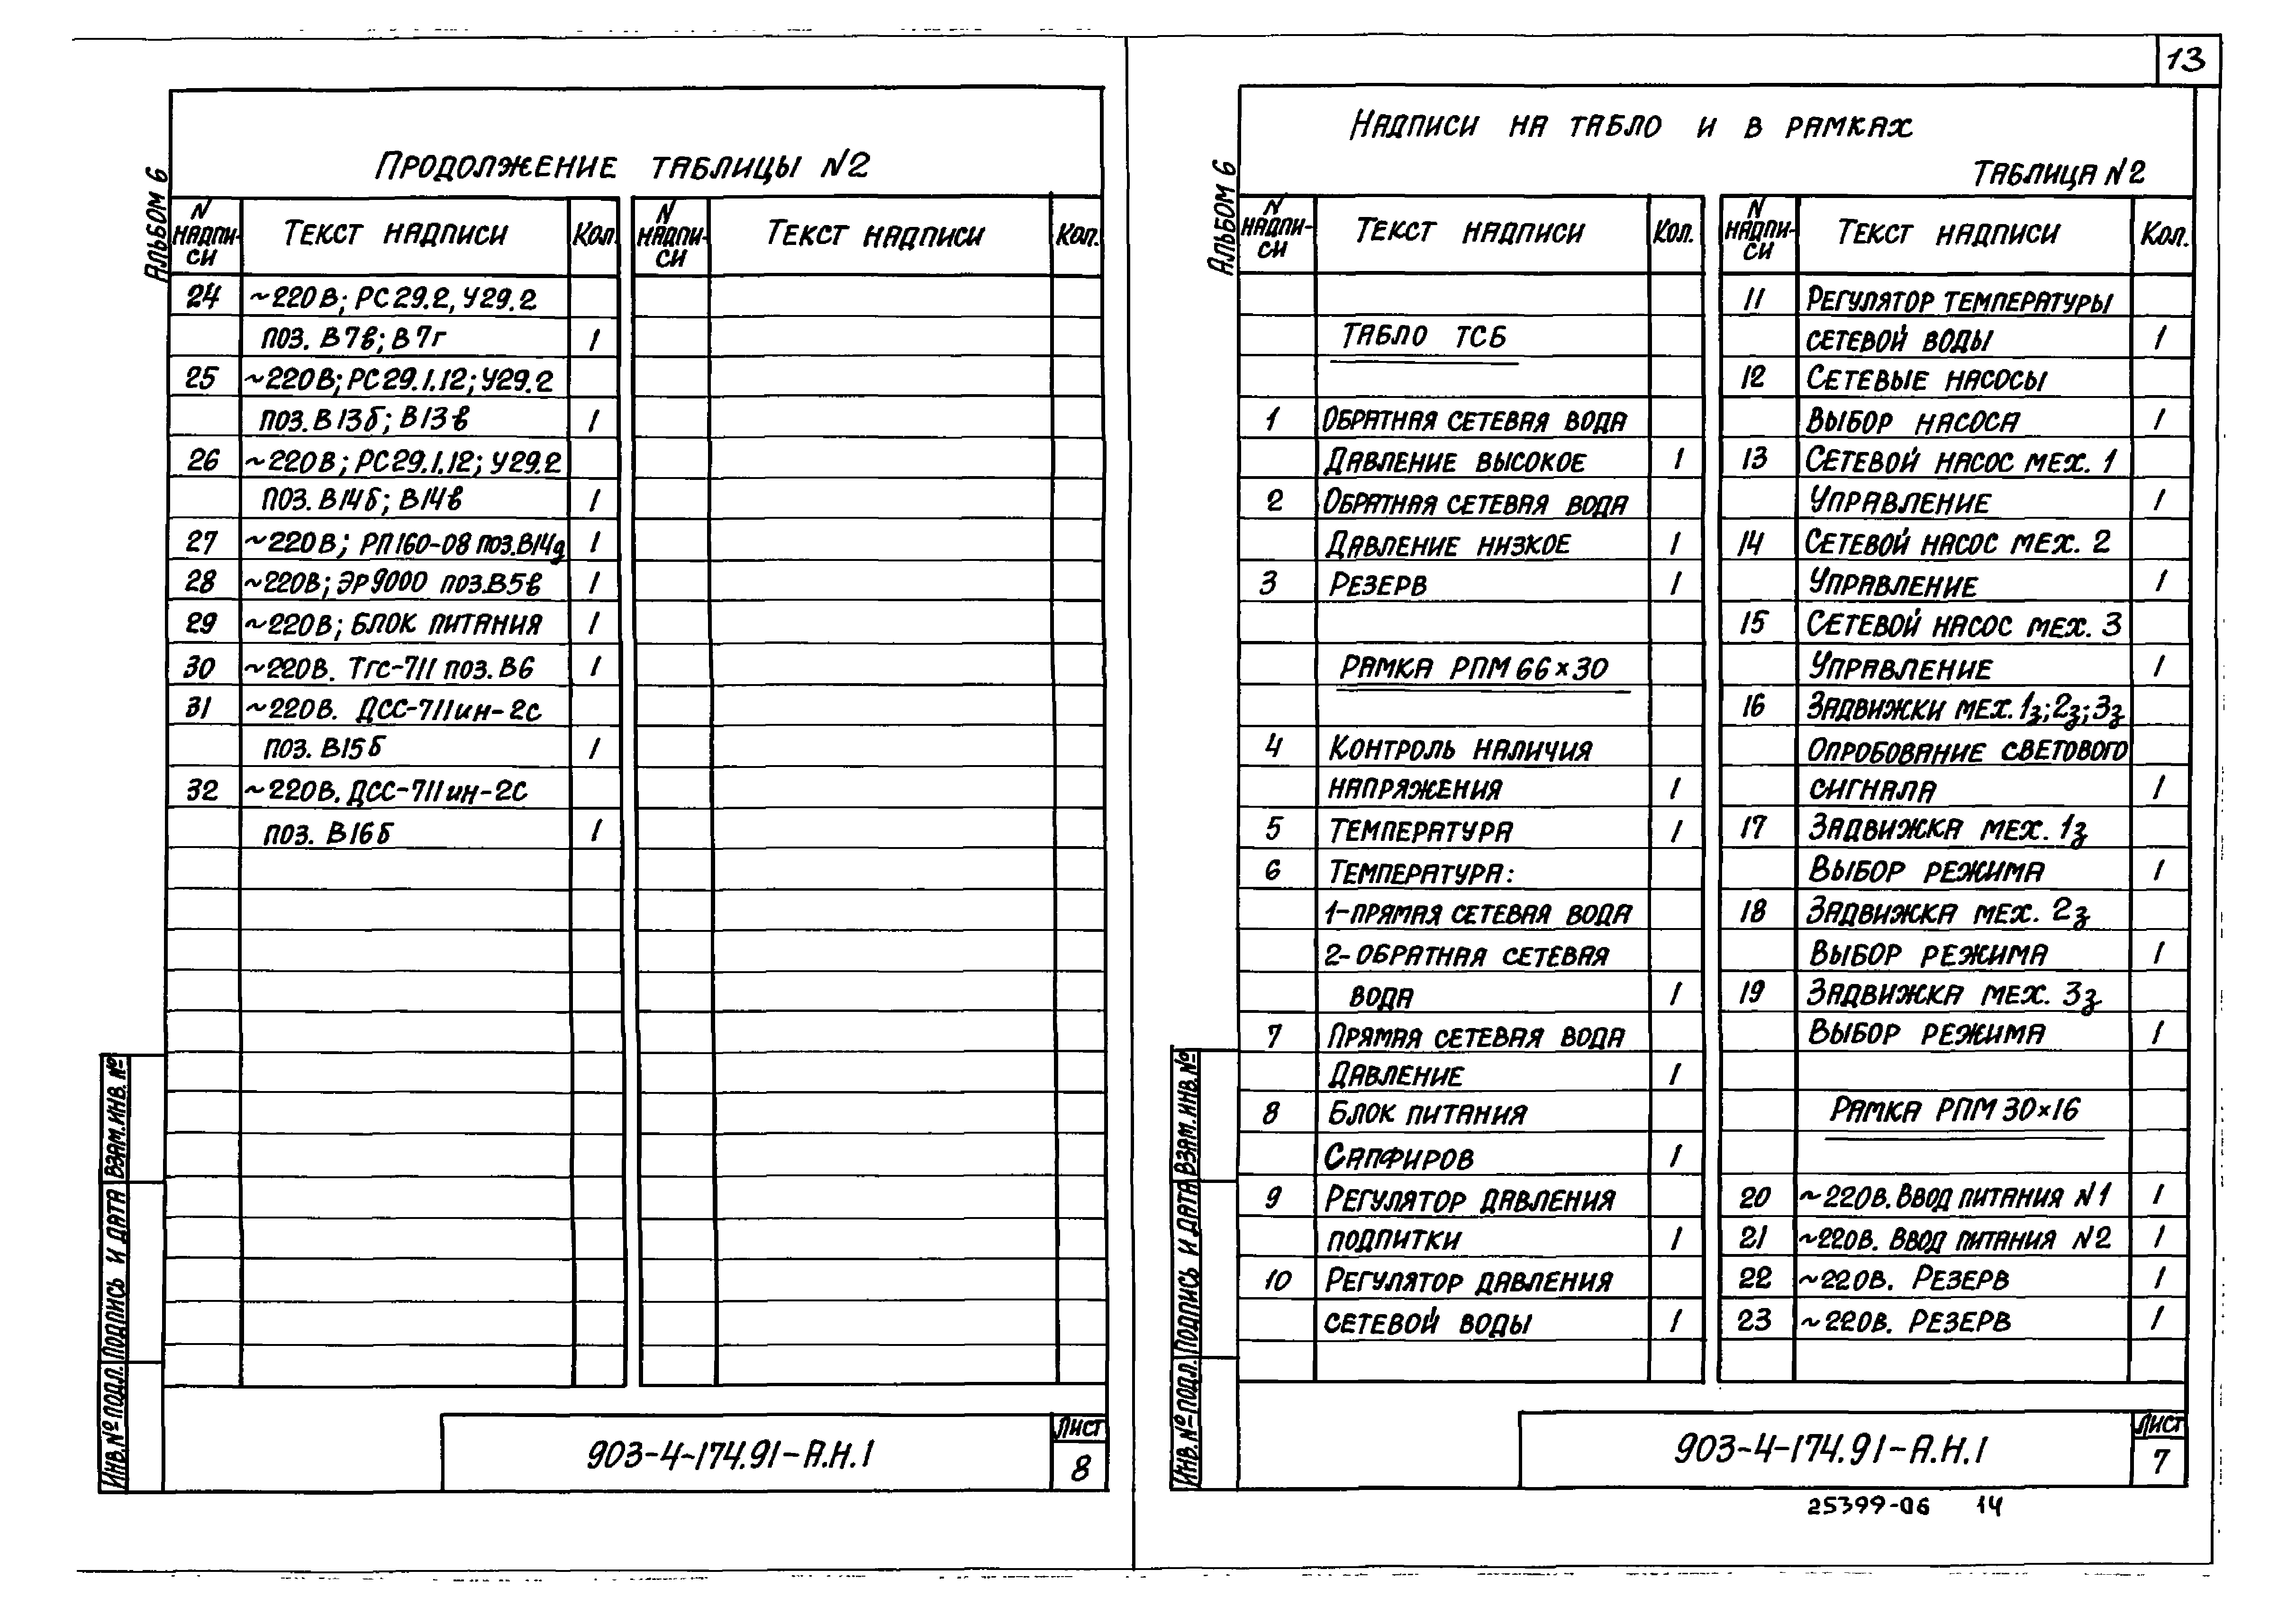 13
Альбом 6
Продолжение таблицы N2
N надпи-си Текст надписи Кол. N надпи-си Текст надписи Кол.
24 ~220В; РС29.2, У29.2
поз. В7в; В7г 1
25 ~220В; РС29.1.12; У29.2
поз. В13б; В13в 1
26 ~220В; РС29.1.12; У29.2
поз. В14б; В14в 1
27 ~220В; РП160-08 поз.В14д 1
28 ~220В; ЭР9000 поз.В5в 1
29 ~220В; Блок питания 1
30 ~220В. ТГС-711 поз. В6 1
31 ~220В. ДСС-711ин-2С
поз. В15б 1
32 ~220В. ДСС-711ин-2С
поз. В16б 1
Взам.инв.№
Подпись и дата
Инв.№ подл.
903-4-174.91-А.Н.1
Лист
8
Альбом 6
Надписи на табло и в рамках
Таблица N2
N надпи-си Текст надписи Кол. N надпи-си Текст надписи Кол.
Табло ТСБ
1 Обратная сетевая вода
Давление высокое 1
2 Обратная сетевая вода
Давление низкое 1
3 Резерв 1
Рамка РПМ 66×30
4 Контроль наличия
напряжения 1
5 Температура 1
6 Температура:
1-прямая сетевая вода
2-обратная сетевая
вода 1
7 Прямая сетевая вода
Давление 1
8 Блок питания
Сапфиров 1
9 Регулятор давления
подпитки 1
10 Регулятор давления
сетевой воды 1
11 Регулятор температуры
сетевой воды 1
12 Сетевые насосы
Выбор насоса 1
13 Сетевой насос мех. 1
Управление 1
14 Сетевой насос мех. 2
Управление 1
15 Сетевой насос мех. 3
Управление 1
16 Задвижки мех. 1з;2з;3з
Опробование светового
сигнала 1
17 Задвижка мех. 1з
Выбор режима 1
18 Задвижка мех. 2з
Выбор режима 1
19 Задвижка мех. 3з
Выбор режима 1
Рамка РПМ 30×16
20 ~220В. Ввод питания N1 1
21 ~220В. Ввод питания N2 1
22 ~220В. Резерв 1
23 ~220В. Резерв 1
Взам.инв.№
Подпись и дата
Инв.№ подл.
903-4-174.91-А.Н.1
Лист
7
25399-06 14